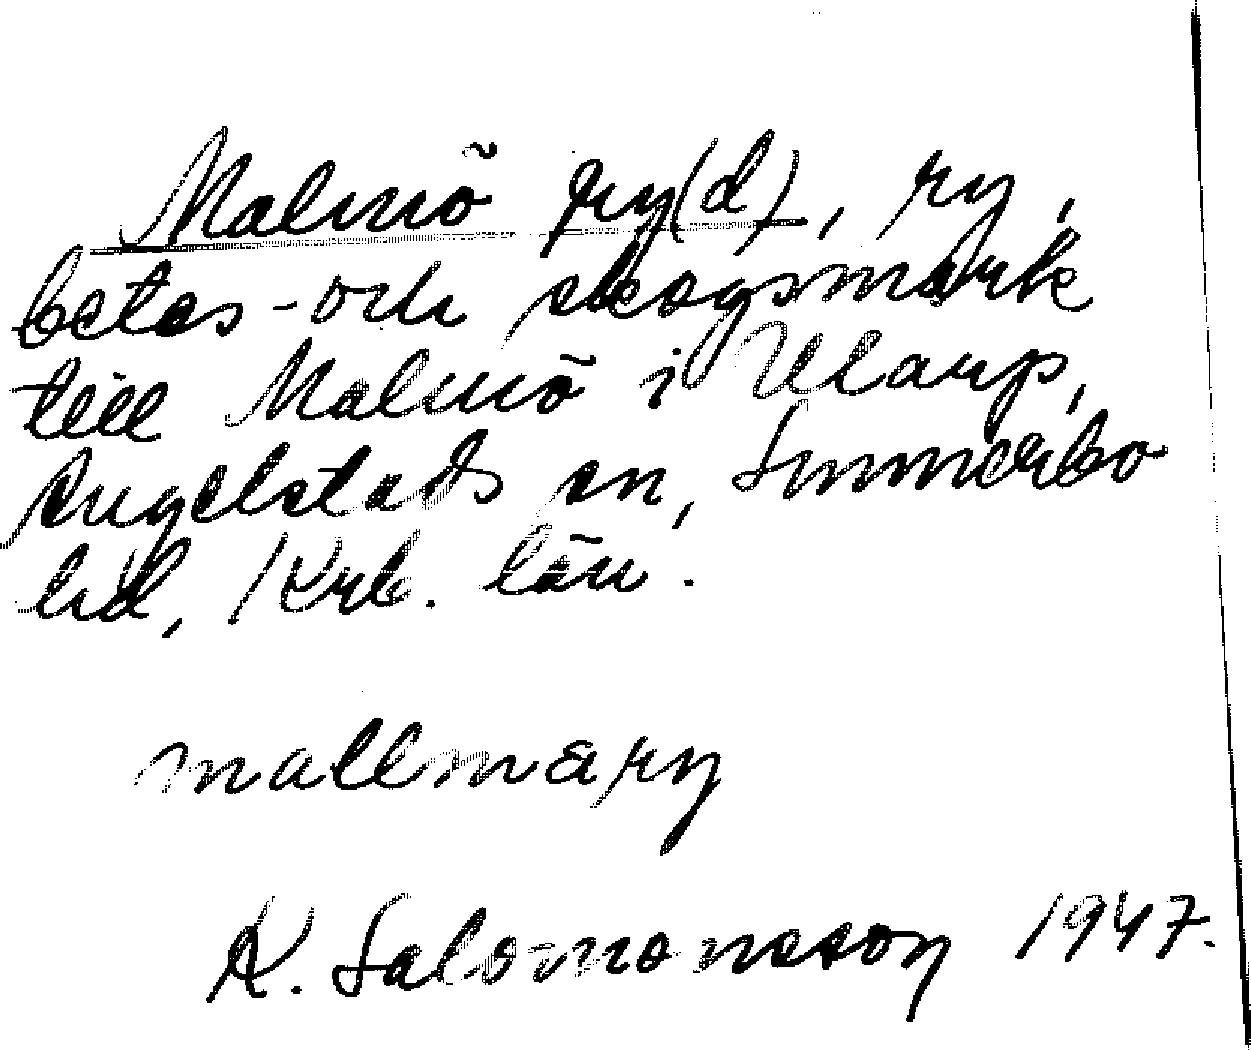 Malmö ry(d), ry,
betes- och skogsmark
till Malmö i Ularp,
Angelstads sn, Sunnerbo
hd, Krb. län.
mallmary
K. Salomonsson 1947.